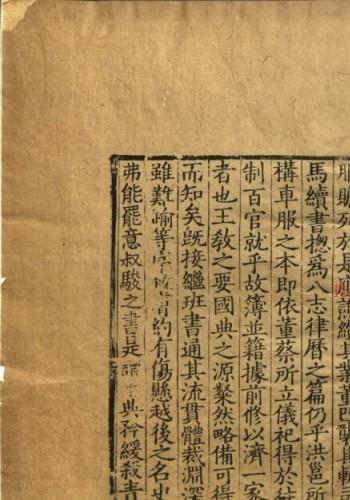 於是應譙纘其業董巴
馬續書摠爲八志律曆之篇仍乎洪邕所
構車服之本即依董蔡所立儀祀得於
制百官就乎故簿並籍據前修以濟一家
者也王敎之要國典之源粲然略備可得
而知矣旣接繼班書通其流貫體裁淵深
雖難踰等序約有傷縣越後之名史
弗能罷意叔駿之書是謂十典矜緩殺青